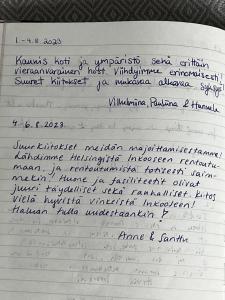 1.-4.8.2023
Kaunis koti ja ympäristö sekä erittäin
vieraanvarainen hosti. Viihdyimme erinomaisesti!
Suuret kiitokset ja mukavaa alkavaa syksyä!
Vilhelmina, Pauliina & Hannele
4-6.8.2023
Suurkiitokset meidän majoittamisestamme!
Lähdimme Helsingistä Inkooseen rentoutu-
maan, ja rentoutumista totisesti saim-
mekin! Huone ja fasiliteetit olivat
juuri täydelliset sekä rauhalliset. Kiitos
vielä hyvistä vinkeistä Inkooseen!
Haluan tulla uudestaankin!
Anne & Santtu